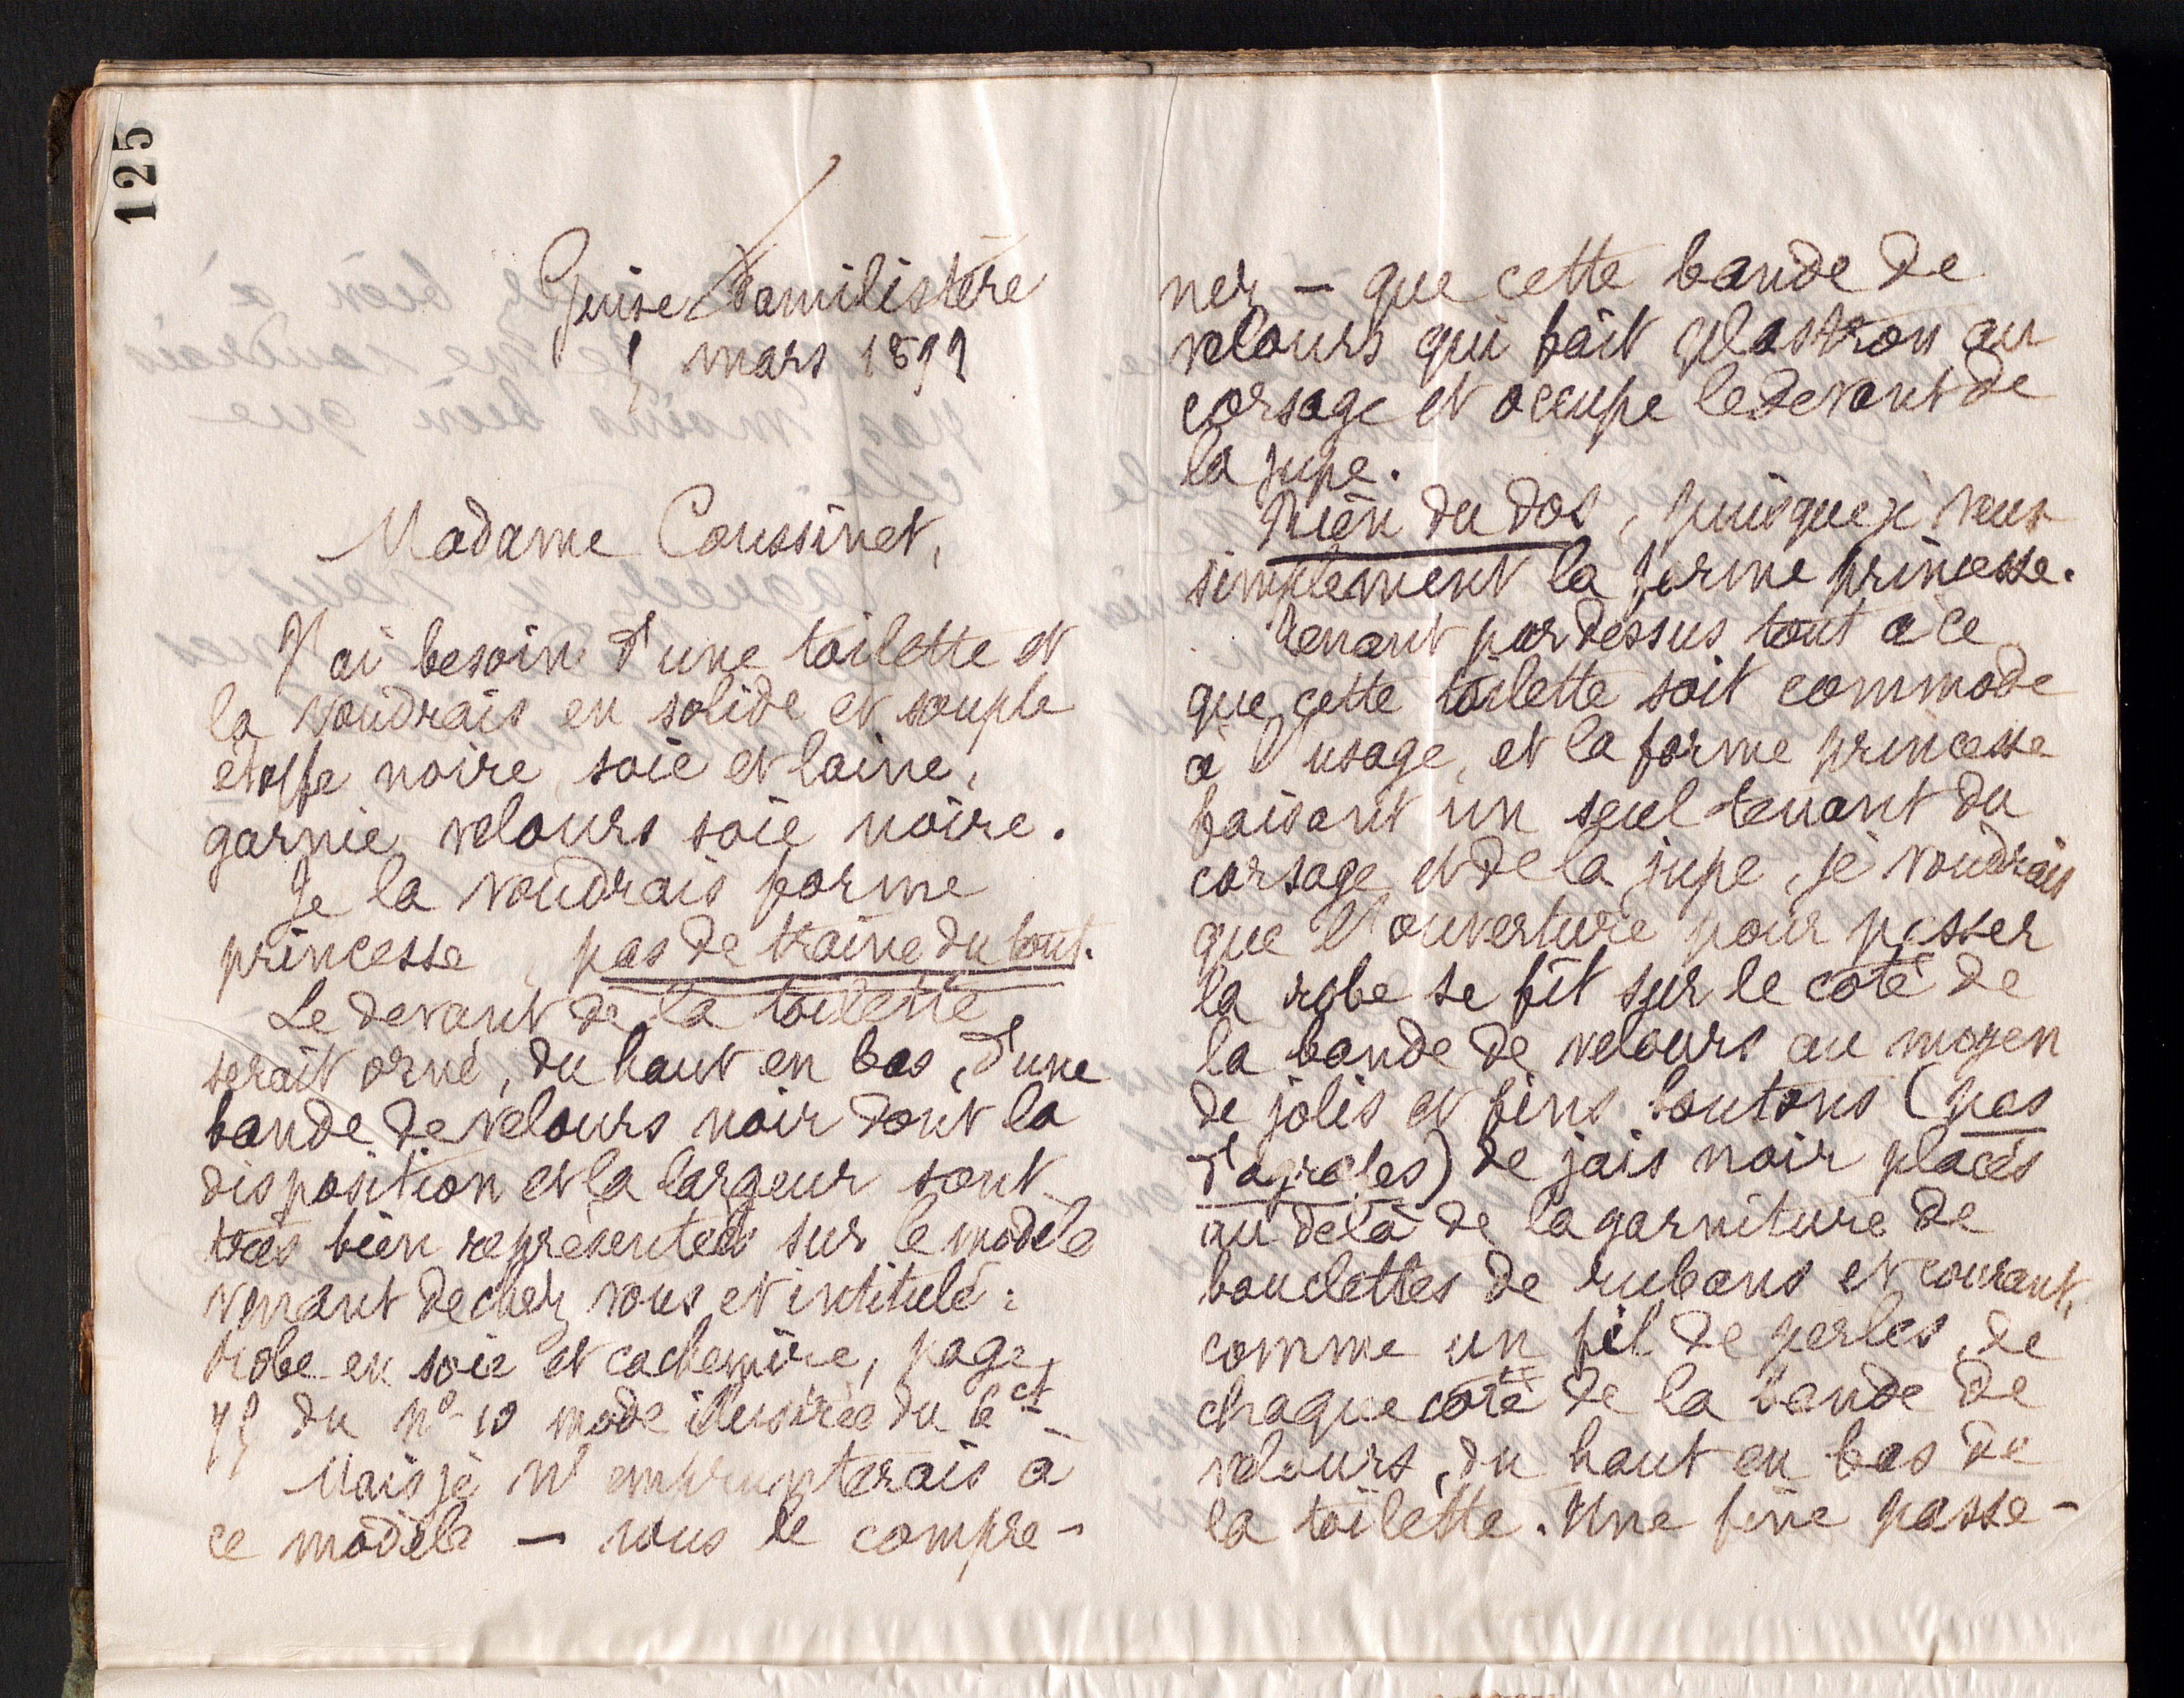 125
Guise Familistère
5 mars 1892
Madame Coussinet,
J'ai besoin d'une toilette et
la voudrais en solide et souple
étoffe noire, soie et laine,
garnie velours soie noire.
Je la voudrais forme
princesse, pas de traine du tout.
Le devant de la toilette
serait orné, du haut en bas, d'une
bande de velours noir dont la
disposition et la largeur sont
très bien représentées sur le modèle
venant de chez vous et intitulé :
robe en soie et cachemire, page
75 du nº 10 mode illustrée du 6 ct
Mais je n'emprunterais à
ce modèle — vous le compre-
nez — que cette bande de
velours qui fait plastron au
corsage et occupe le devant de
la jupe.
Rien du dos, puisque je veux
simplement la forme princesse.
Tenant par dessus tout à ce
que cette toilette soit commode
à l'usage, et la forme princesse
faisant un seul tenant du
corsage et de la jupe, je voudrais
que l'ouverture pour passer
la robe se fît sur le côté de
la bande de velours au moyen
de jolis et fins boutons (pas
d'agrafes) de jais noir placés
au delà de la garniture de
bouclettes de rubans et courant,
comme un fil de perles, de
chaque côté de la bande de
velours, du haut en bas de
la toilette. Une fine passe-